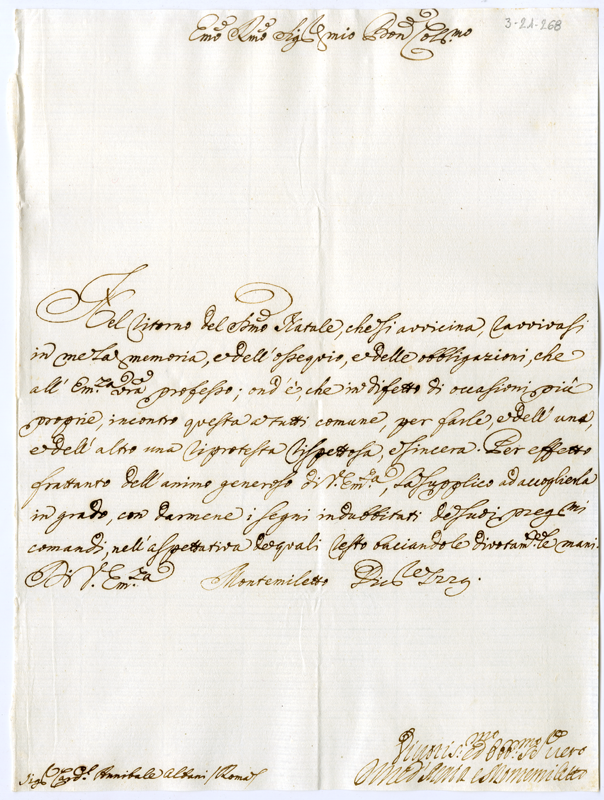 3-21-268
Emo Rmo Sigre mio Pron Colmo
Nel ritorno del Smo Natale, che si avvicina, ravvivasi
in me la memoria, e dell' ossequio, e delle obbligazioni, che
all' Em.za Vra professo; ond' è, che in difetto di occasioni più
proprie, incontro questa a tutti comune, per farle, e dell' uno,
e dell' altro una riprotesta rispettosa, e sincera. Per effetto
frattanto dell' animo generoso di V.ra Em.za, La supplico ad accoglierla
in grado, con darmene i segni indubbitati de suoi preg.mi
comandi, nell' aspettativa de quali resto baciandole divotam.te le mani.
Di V. Em.za Montemiletto Dic.re 1729.
Sigr Card.l Annibale Albani / Roma
e Montemiletto